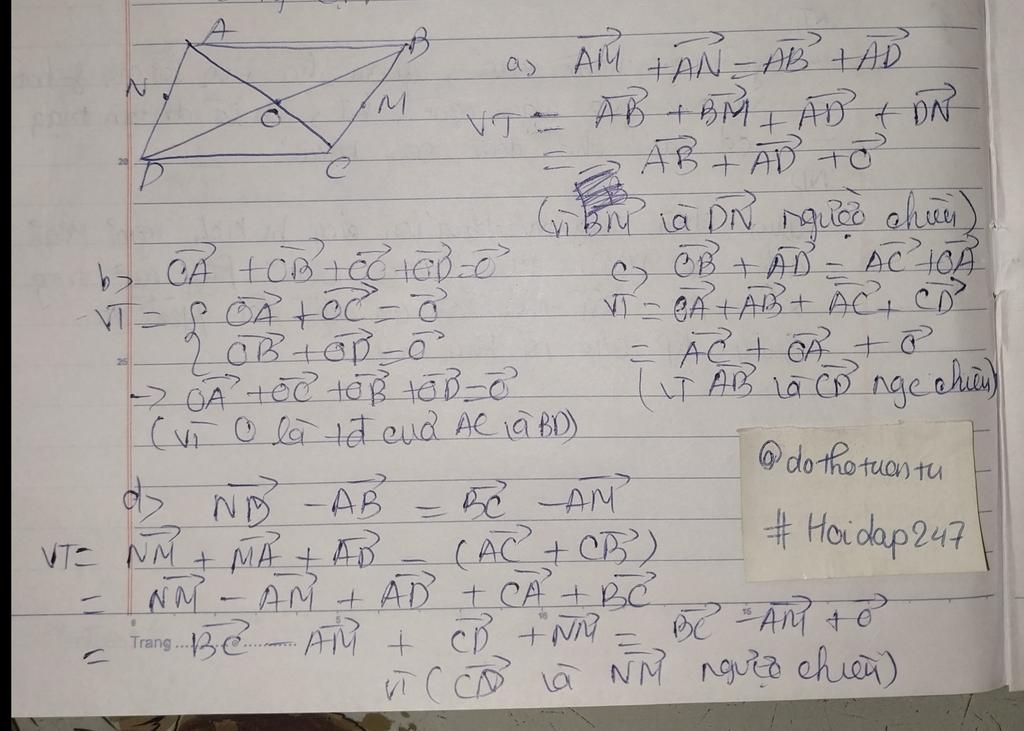 A
B
N
O
M
D
C
a) AM⃗ + AN⃗ = AB⃗ + AD⃗
VT = AB⃗ + BM⃗ + AD⃗ + DN⃗
= AB⃗ + AD⃗ + O⃗
(vì BM⃗ là DN⃗ người chiều)
b) OA⃗ + OB⃗ + OC⃗ + OD⃗ = O⃗
VT = { OA⃗ + OC⃗ = O⃗
{ OB⃗ + OD⃗ = O⃗
→ OA⃗ + OC⃗ + OB⃗ + OD⃗ = O⃗
(vì O là tđ của AC là BD)
c) OB⃗ + AD⃗ = AC⃗ + OA⃗
VT = OA⃗ + AB⃗ + AC⃗ + CD⃗
= AC⃗ + OA⃗ + O⃗
(vì AB⃗ là CD⃗ ngc chiều)
@dothotuantu
# Hoidap247
d) ND⃗ - AB⃗ = BC⃗ - AM⃗
VT = NM⃗ + MA⃗ + AD⃗ - (AC⃗ + CB⃗)
= NM⃗ - AM⃗ + AD⃗ + CA⃗ + BC⃗
= BC⃗ - AM⃗ + CD⃗ + NM⃗ = BC⃗ - AM⃗ + O⃗
vì (CD⃗ là NM⃗ người chiều)
Trang